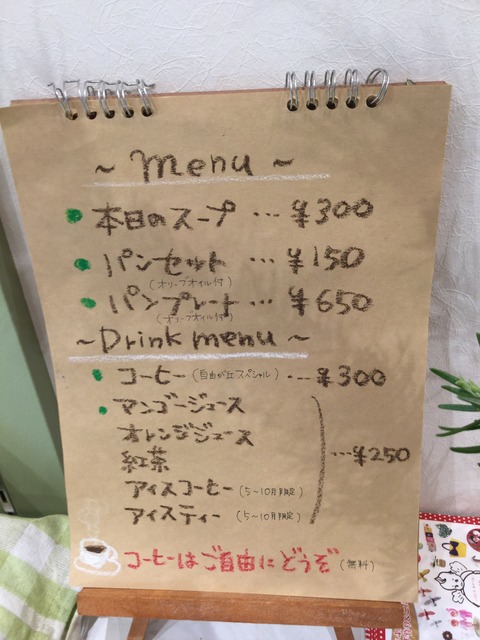 ~ Menu ~
本日のスープ … ¥300
パンセット … ¥150
(オリーブオイル付)
パンプレート … ¥650
(オリーブオイル付)
~Drink menu~
コーヒー (自由が丘スペシャル) … ¥300
マンゴージュース
オレンジジュース
紅茶
… ¥250
アイスコーヒー (5~10月限定)
アイスティー (5~10月限定)
コーヒーはご自由にどうぞ (無料)